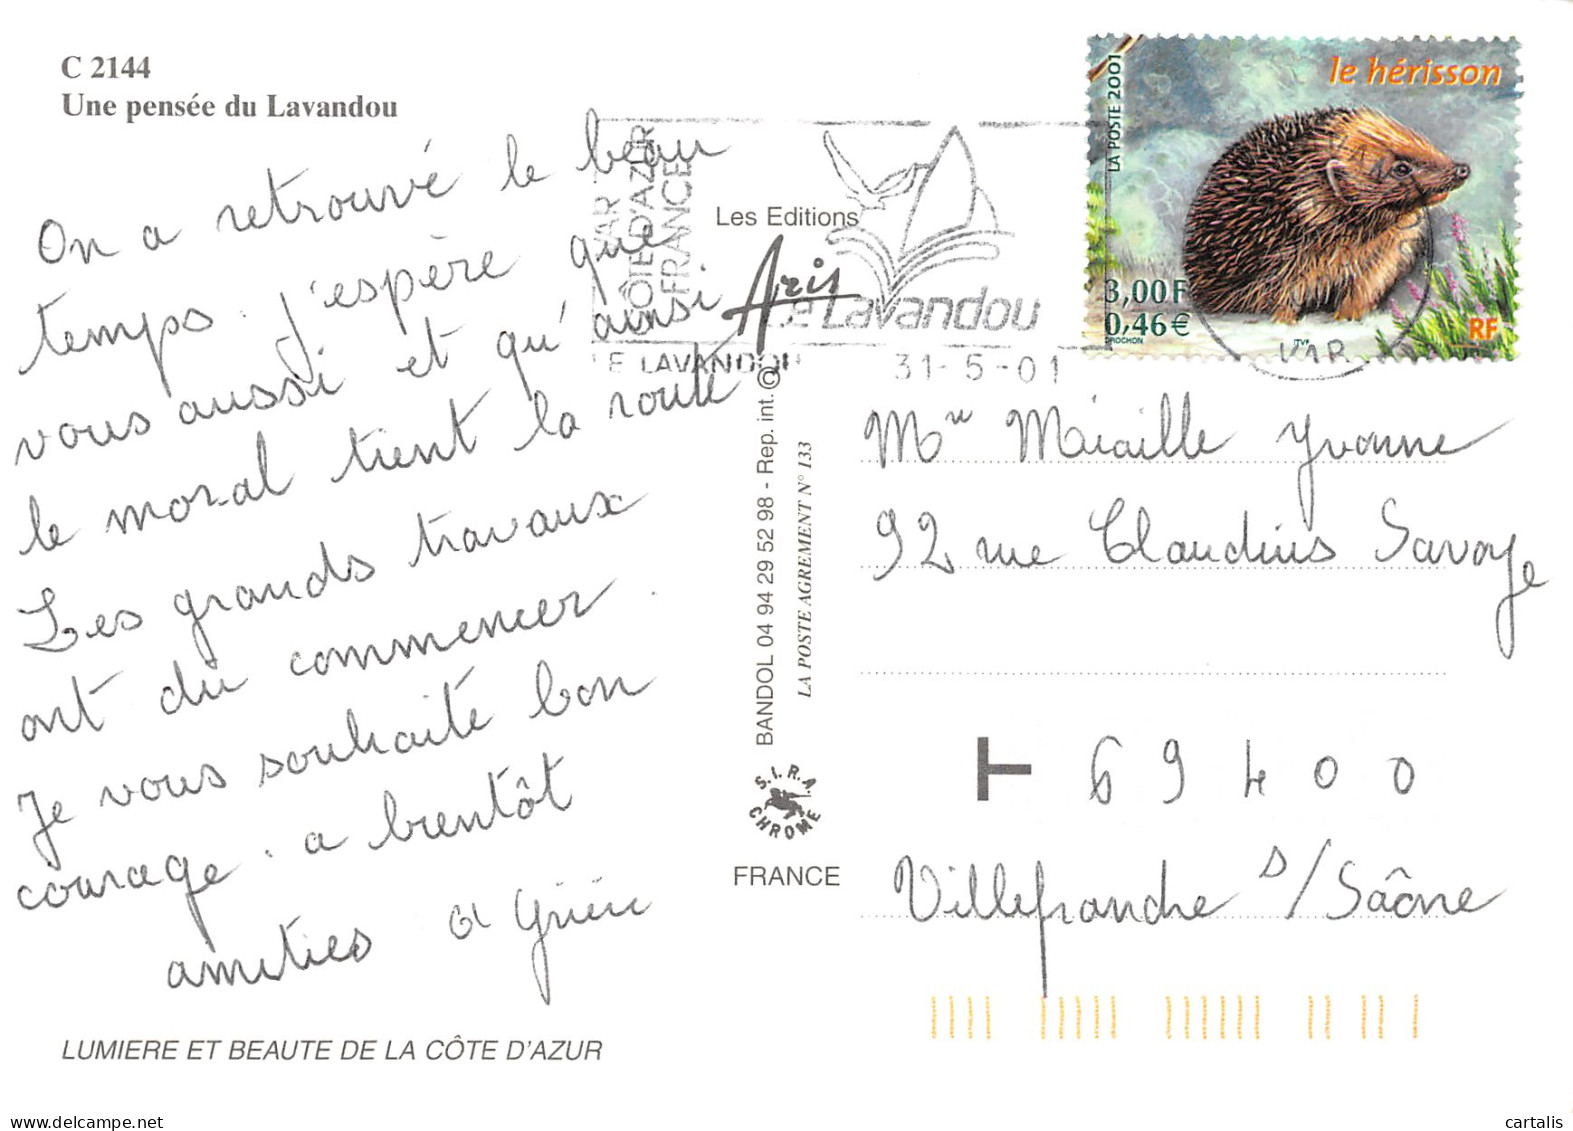 C 2144
Une pensée du Lavandou
On a retrouvé le beau
temps. j'espère que
vous aussi et qu'ainsi
le moral tient la route
Les grands travaux
ont du commencer.
Je vous souhaite bon
courage. a bientôt
amitiés
LUMIERE ET BEAUTE DE LA CÔTE D'AZUR
VAR
CÔTE D'AZUR
FRANCE
Le Lavandou
LE LAVANDOU 31-5-01
Les Editions
Aris
BANDOL 04 94 29 52 98 - Rep. int. ©
LA POSTE AGREMENT N° 133
S.I.R.A.
CHROME
FRANCE
le hérisson
LA POSTE 2001
3,00 F
0,46 €
RF
DROCHON
ITVF
VAR
Miaille Yvonne
92 rue Claudius Savoye
T 69400
Villefranche s/Saône
cartalis